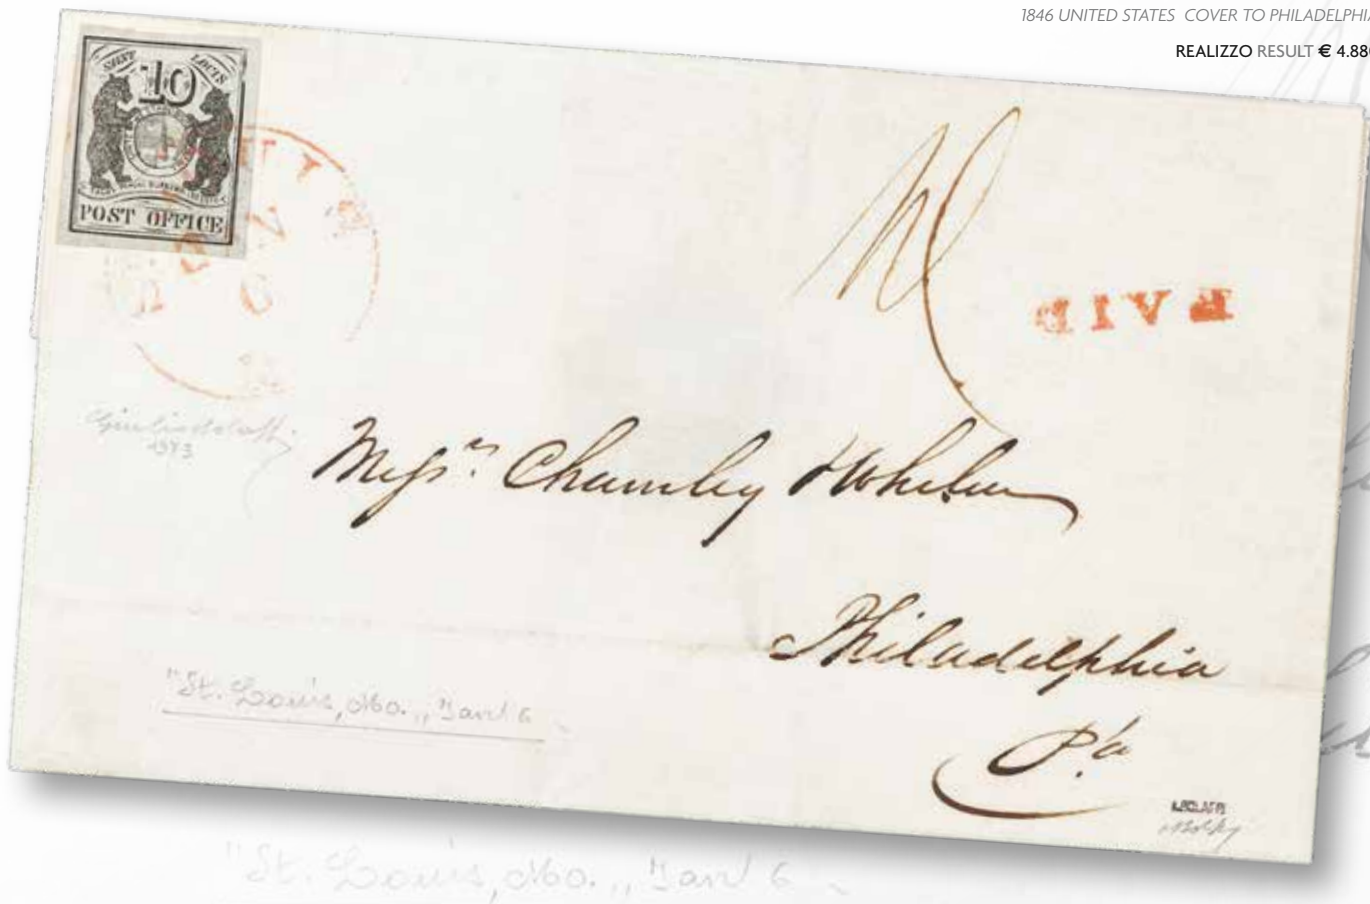 1846 UNITED STATES COVER TO PHILADELPHIA
REALIZZO RESULT € 4.880
SAINT LOUIS
10
POST OFFICE
PAID
10
1973
Messrs. Chumley & Whelen
Philadelphia
Pa
"St. Louis, Mo.,, Jan 6
A.BOLAFFI
"St. Louis, Mo.,, Jan 6